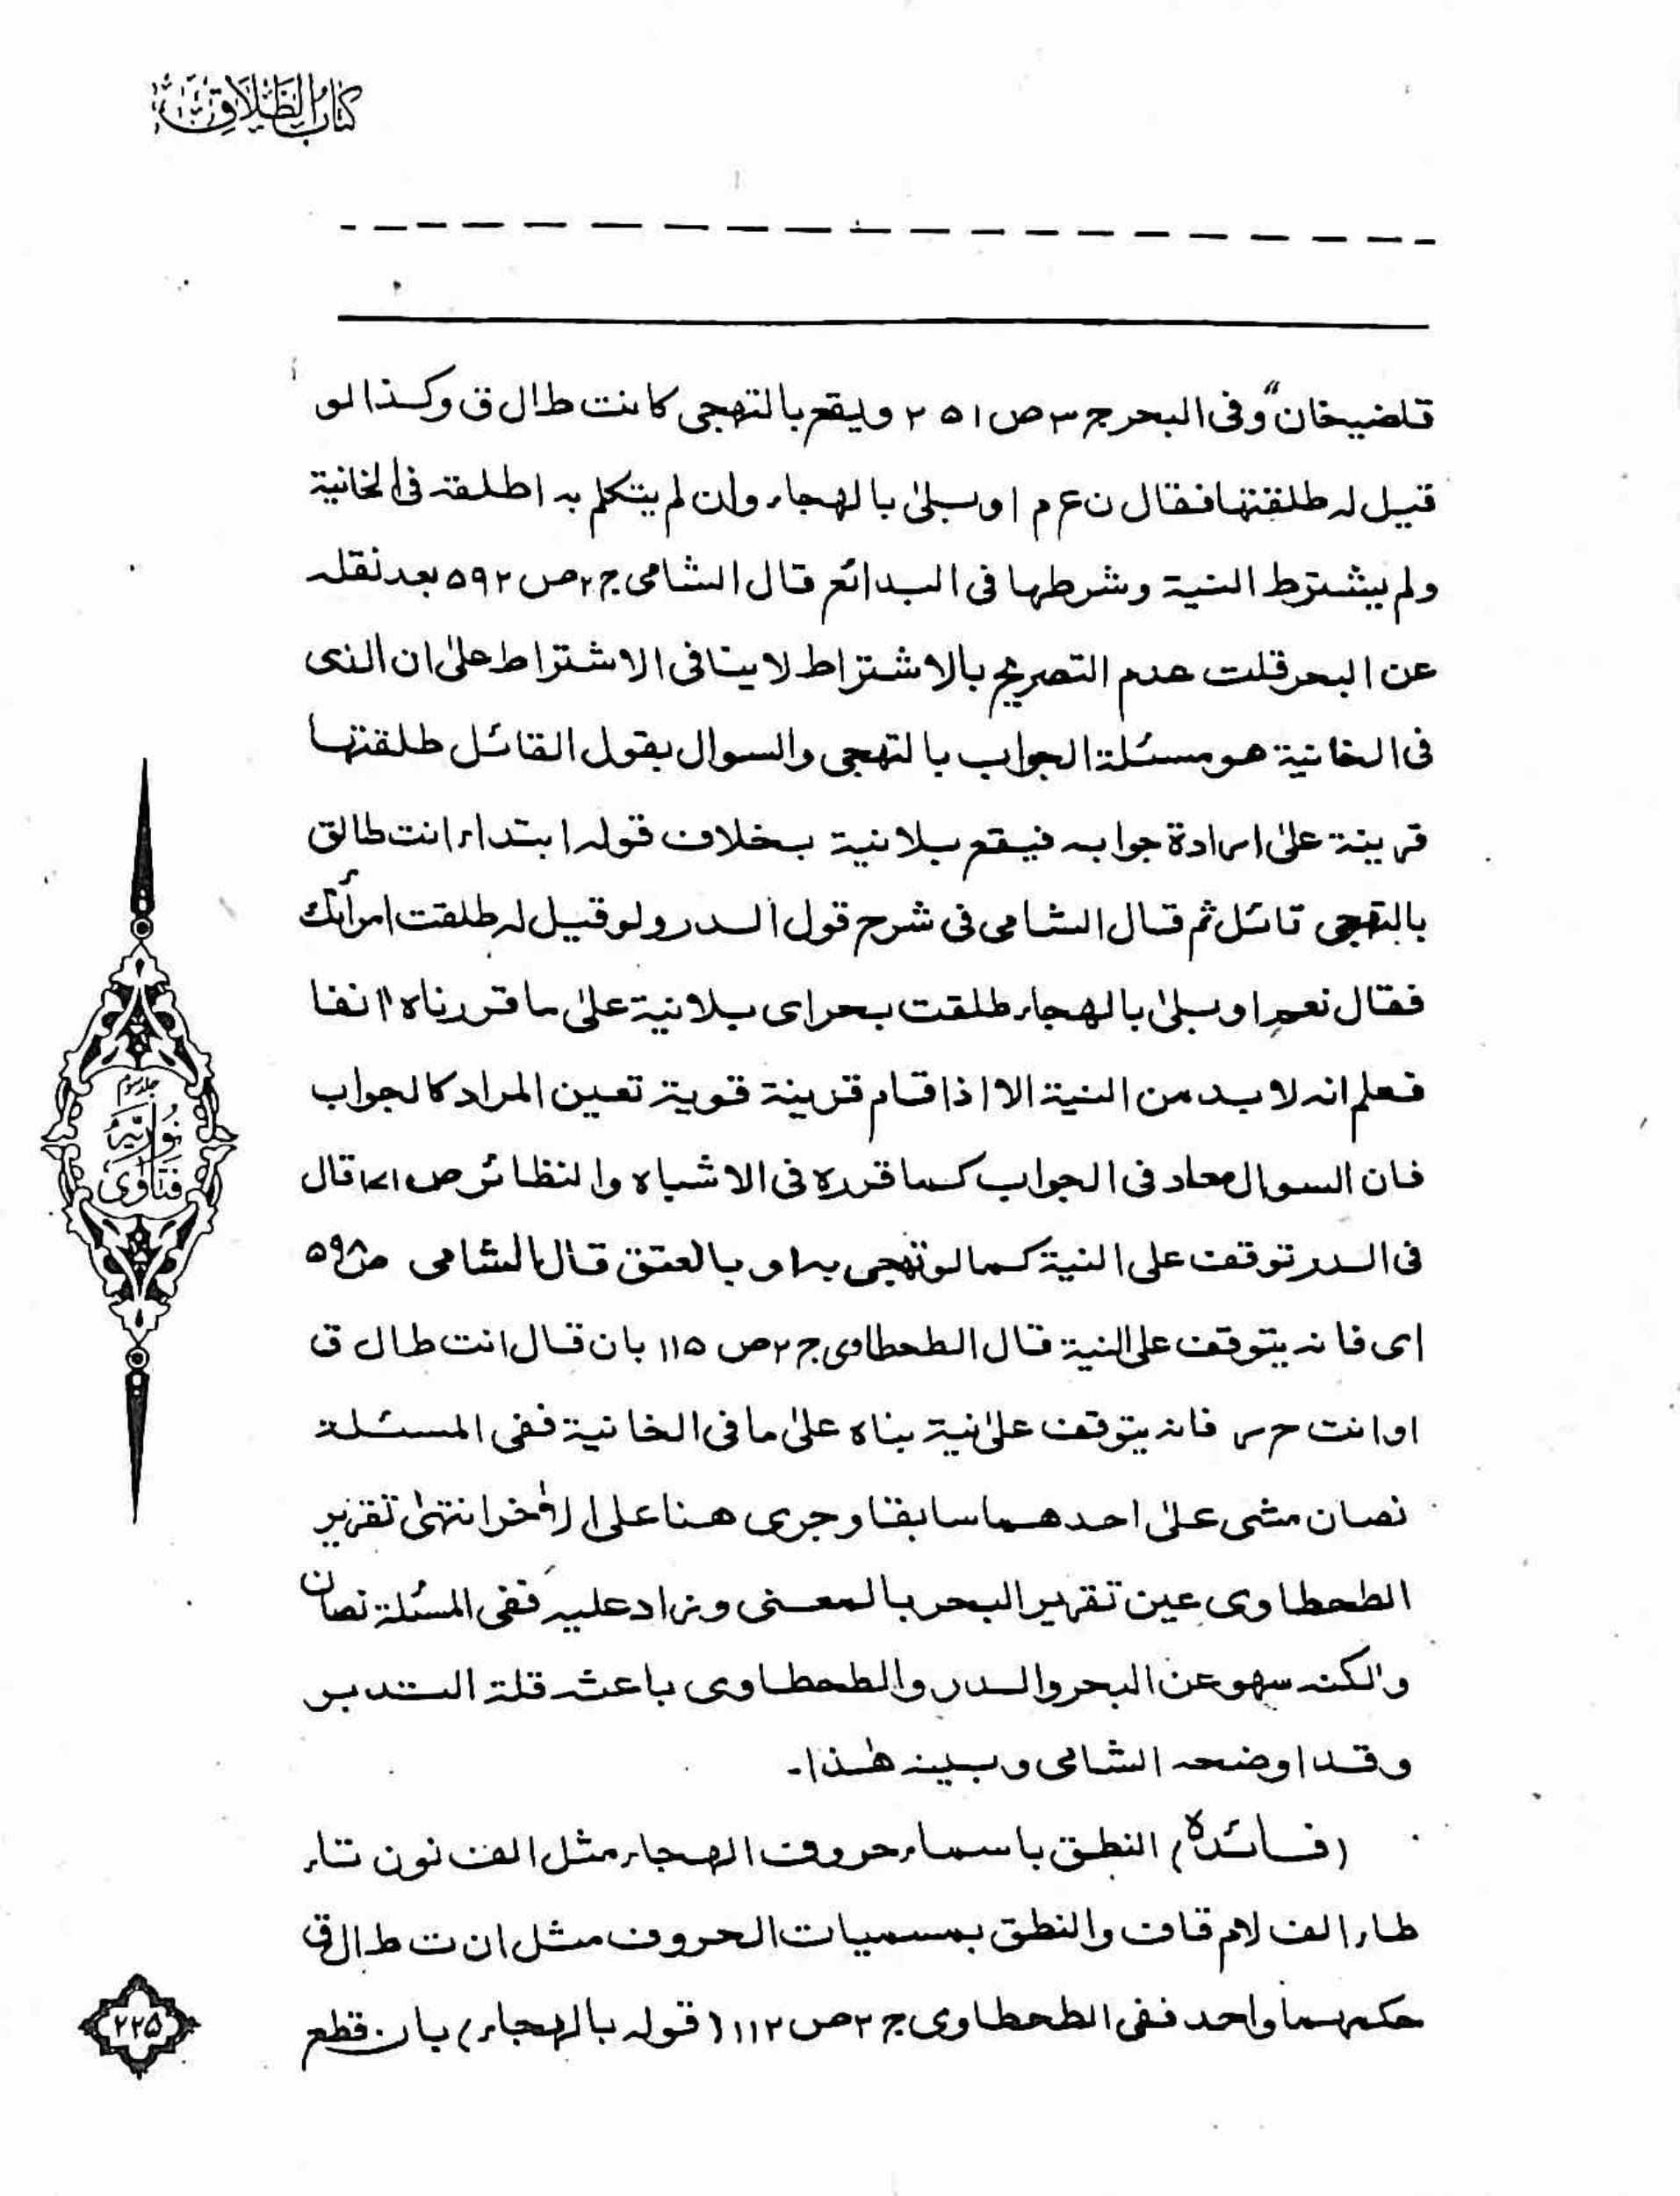 كتاب الطلاق
قاضيخان" وفى البحر ج ٣ ص ٢٥١ ويقع بالتهجى كانت ط ال ق وكذا لو
قيل له طلقتها فقال ن ع م او بلىٰ بالهجاء وان لم يتكلم به اطلقه فى الخانية
ولم يشترط النية وشرطها فى البدائع قال الشامى ج ٢ ص ٥٩٢ بعد نقله
عن البحر قلت عدم التصريح بالاشتراط لا ينافى الاشتراط علىٰ ان الذى
فى الخانية هو مسئلة الجواب بالتهجى والسوال بقول القائل طلقتها
قرينة علىٰ ارادة جوابه فيقع بلانية بخلاف قوله ابتداء انت طالق
بالتهجى تائل ثم قال الشامى فى شرح قول الدر ولو قيل له طلقت امرأتك
فقال نعم او بلىٰ بالهجاء طلقت بحر اى بلانية علىٰ ما قررناه اٰنفا
فعلم انه لا بد من النية الا اذا قام قرينة قوية تعين المراد كالجواب
فان السوال معاد فى الجواب كما قرره فى الاشباه والنظائر ص قال
فى الدر توقف على النية كما لو تهجى به او بالعتق قال الشامى ص ٥٩٨
اى فانه يتوقف على النية قال الطحطاوى ج ٢ ص ١١٥ بان قال انت ط ال ق
او انت ح ر فانه يتوقف علىٰ نية بناه علىٰ ما فى الخانية ففى المسئلة
نصان مشى علىٰ احدهما سابقا وجرى هنا على الاٰخر انتهىٰ تقرير
الطحطاوى عين تقرير البحر بالمعنى وزاد عليه ففى المسئلة نصان
والكنه سهو عن البحر والدر والطحطاوى باعثه قلة التدبر
وقد اوضحه الشامى وبينه هٰذا۔
(فائدہ) النطق باسماء حروف الهجاء مثل الف نون تاء
طاء الف لام قاف والنطق بمسميات الحروف مثل ان ت ط ال ق
حكمهما واحد ففى الطحطاوى ج ٢ ص ١١٢ (قوله بالهجاء) بان قطع
جلد سوم
فتاوىٰ نوريہ
٢٢٥